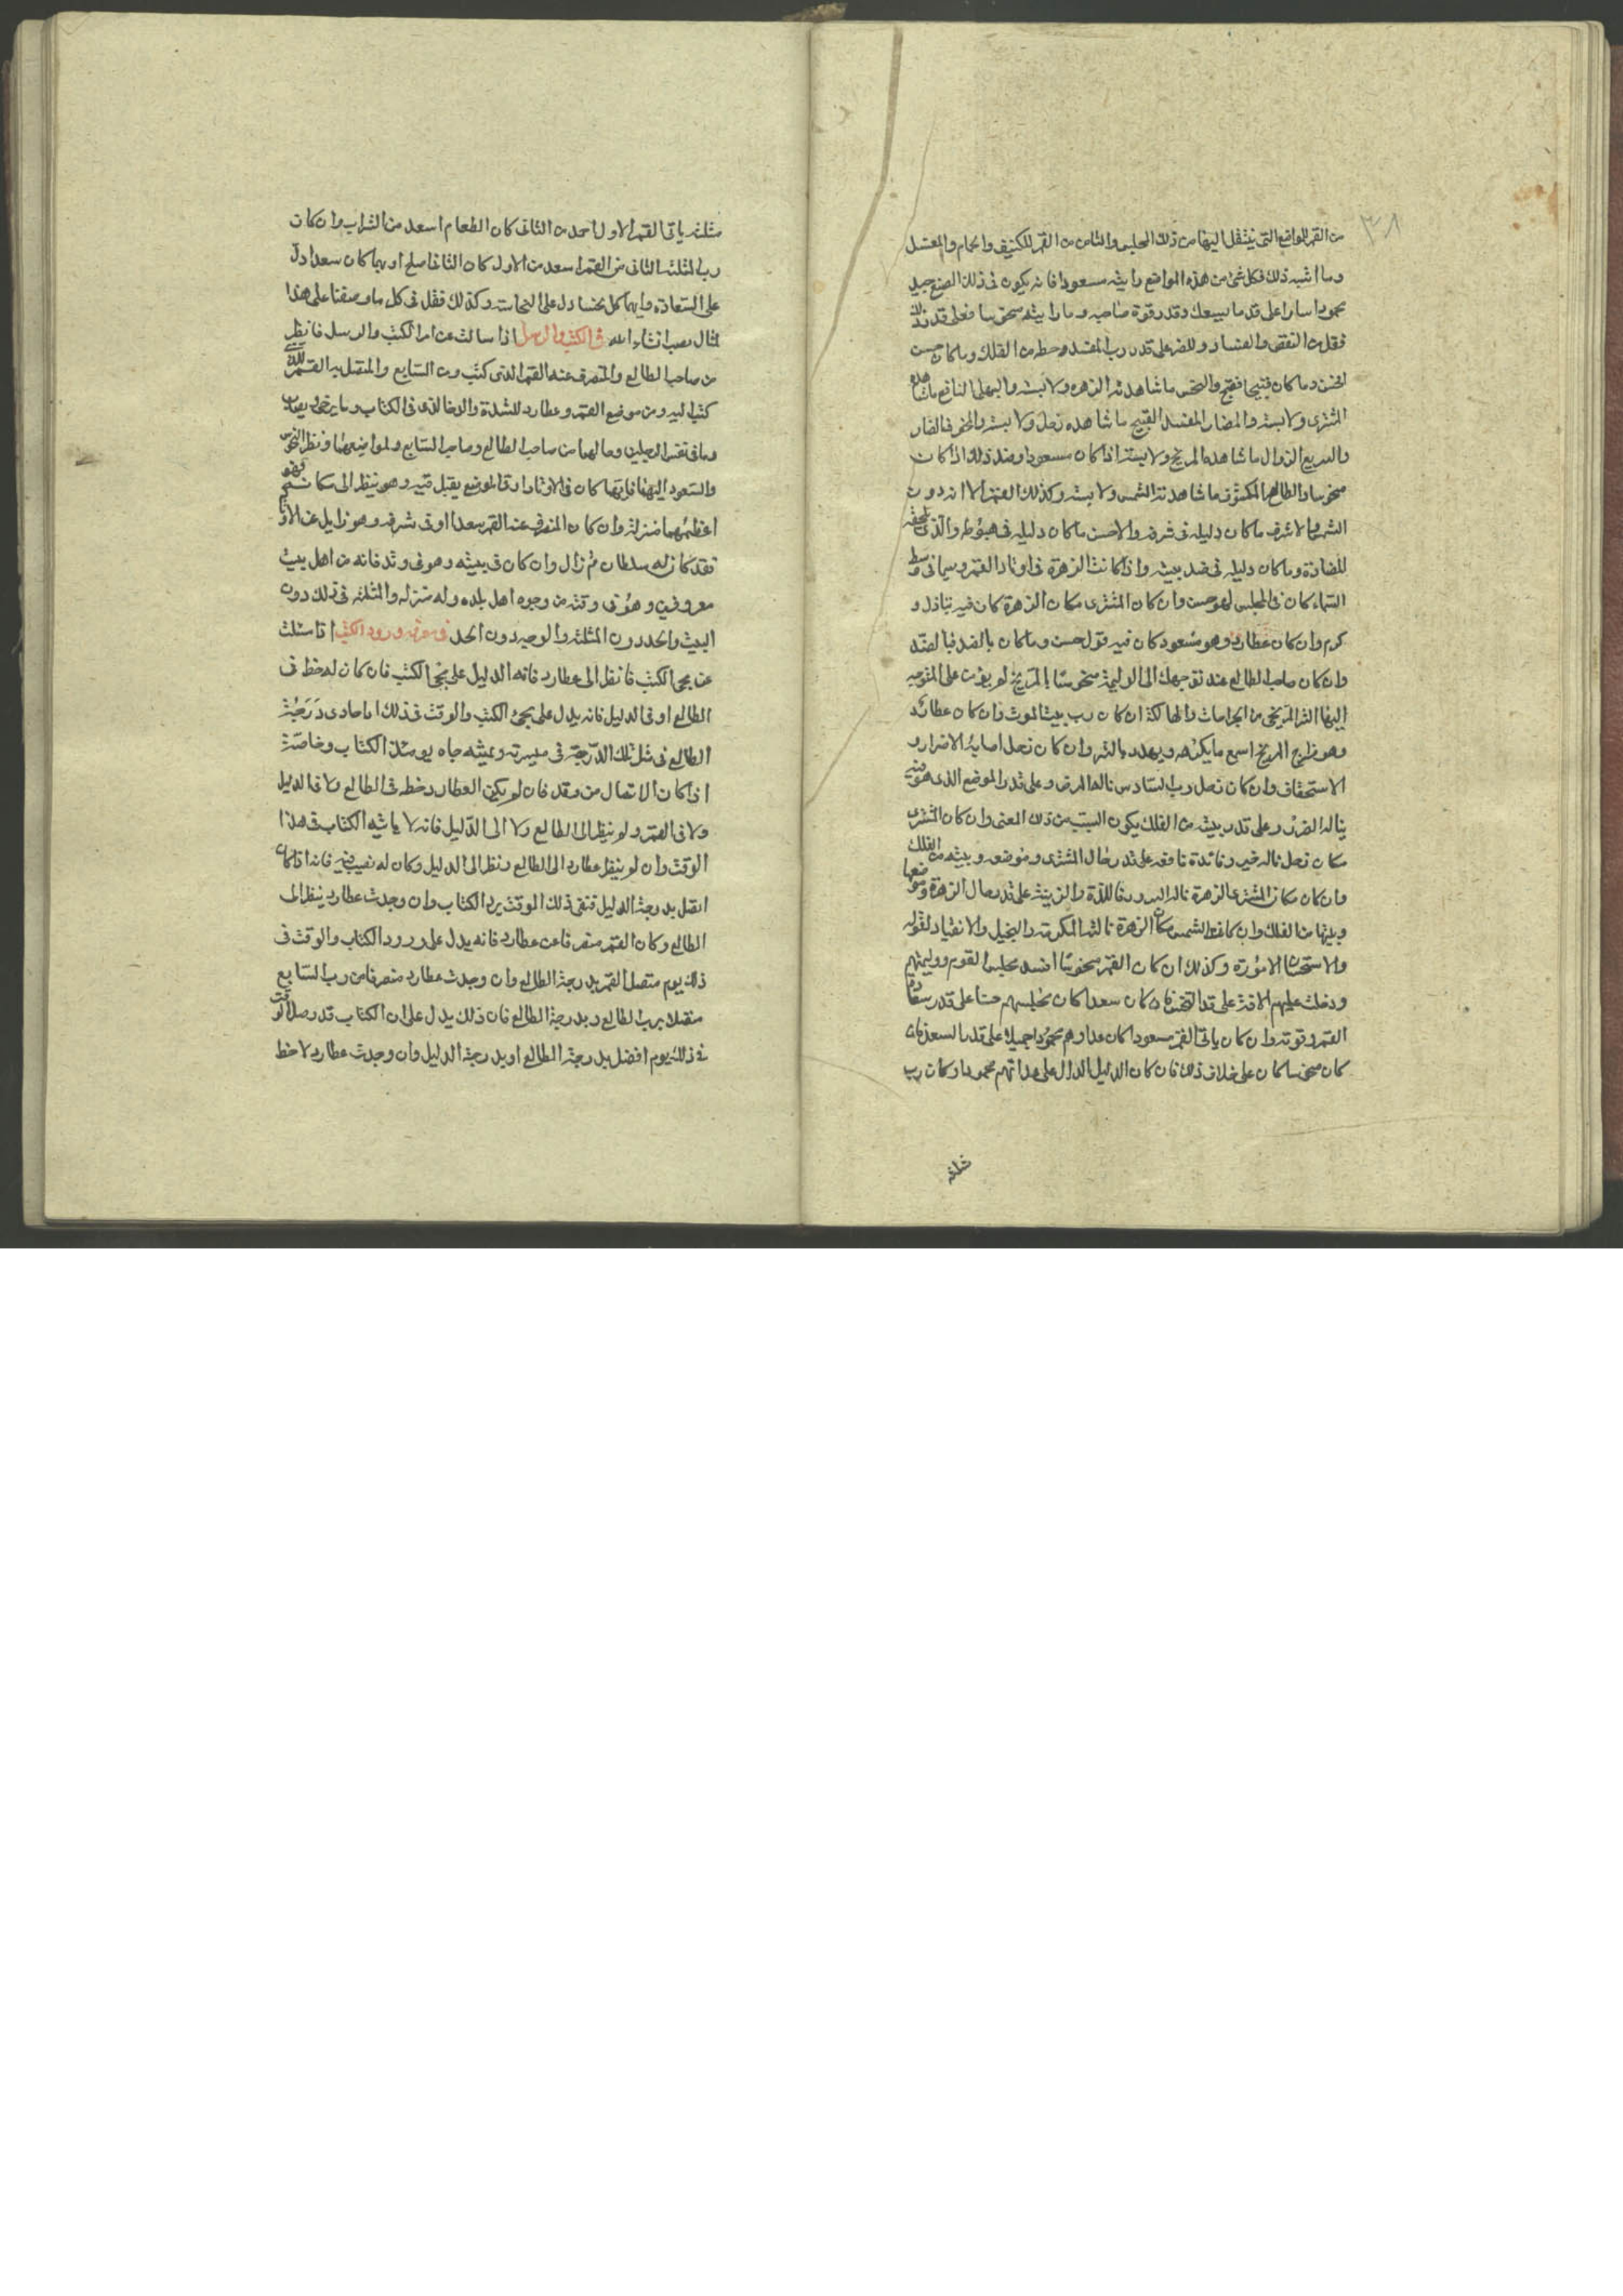 ٣٨
من القمر للمواضع التى ينتقل اليها من ذلك المجلس والثامن من القمر للكنيف والحمام والمغتسل
وما اشبه ذلك فكل شئ من هذه المواضع رايته مسعودا فانه يكون فى ذلك الصنع جيد
محمودا سارا على قدر ما يسعك وقدر قوة صاحبه وما رايته منحوسا فعلى قدر ذلك
فقل من النقص والفساد وللضر على قدر رب المفسد وحظه من الفلك وما كان حسن
الحسن وما كان قبيحا فقبح والنحس ما شاهدته الزهرة ولا بسته والبهى النافع ما شاهده
المشترى ولا بسته والمضار المفسد القبيح ما شاهده زحل ولا بسته والمخوف الضار
والسريع الزوال ما شاهده المريخ ولا بسته اذا كان مسعودا وضد ذلك اذا كان
منحوسا والظاهر المكشوف ما شاهدته الشمس ولا بسته وكذلك القمر الا انه دون
الشمس والاشرف ما كان دليله فى شرفه والاخس ما كان دليله فى هبوطه والذى يلحقه
للمضادة وما كان دليله فى ضد بيته واذا كانت الزهرة فى اوتاد القمر وسيما فى وسط
السماء كان فى المجلس لهو حسن وان كان المشترى مكان الزهرة كان فيه تباذل و
كرم وان كان عطارد وهو مسعود كان فيه قول حسن وما كان بالضد فبالضد
وان كان صاحب الطالع عند توجهك الى الوليمة منحوسا بالمريخ لم يؤمن على المتوجه
اليها الشر المريخى من الجراحات والهلكة ان كان رب بيت الموت وان كان عطارد
وهو مزاج المريخ اسمع ما يكره ويهدد بالشر وان كان زحل اصابه الاضرار و
الاستخفاف وان كان زحل رب السادس ناله المرض وعلى قدر الموضع الذى هو فيه
يناله الضرر وعلى قدر بيته من الفلك يكون السبب من ذلك المعنى وان كان المشترى
مكان زحل ناله خير وفائدة نافعه على قدر حال المشترى وموضعه وبيته من الفلك
وان كان مكان المشترى الزهرة ناله السرور واللذة والزينة على قدر حال الزهرة وموضعها
وبيتها من الفلك وان كانت الشمس مكان الزهرة نالته المكرمة والتبجيل والانقياد لقوله
والاستحسان لاموره وكذلك ان كان القمر منحوسا افسد مجلس القوم ووليمتهم
ودخلت عليهم الافة على قدر النحس فان كان سعدا كان مجلسهم حسنا على قدر سعادة
القمر وقوته وان كان ياتى القمر مسعودا كان مداوهم محمودا جميلا على قدر السعد فان
كان منحسا كان على خلاف ذلك فان كان الدليل الدال على مداتهم محمودا وكان رب
مثلثة
مثلثه ياتى القمر الاول احمد من الثانى كان الطعام اسعد من الشراب وان كان
رب المثلثه الثانى من القمر اسعد من الاول كان الثانى اصلح او بهما كان سعدا دل
على السعادة وايهما كان نحسا دل على النحاسة وكذلك فقل فى كل ما وصفنا على هذا
المثال تصب ان شاء الله فى الكتب والرسل اذا سالت عن امر الكتب والرسل فانظر
من صاحب الطالع والمنصرف عنه القمر الذى كتب ومن السابع والمتصل به القمر للذى
كتب اليه ومن موضع القمر وعطارد للشدة والرخا الذى فى الكتاب وما يرجى ويهاب
وما فى نفس الرجلين وحالهما من صاحب الطالع وصاحب السابع ولمواضعهما ونظر النحوس
والسعود اليهما فايهما كان فى الاوتاد او فى الموضع يقبل فيه وهو ينظر الى مكانه فهو
اعظمهما منزلة وان كان المنصرف عنه القمر سعدا او فى شرفه وهو زايل عن الاوتاد
فقد كان له سلطان ثم زال وان كان فى بيته وهو فى وتد فانه من اهل بيت
معروفين وهو فى وقته من وجوه اهل بلده وله منزله والمثلثه فى ذلك دون
البيت والحد دون المثلثه والوجه دون الحد فى معرفه ورود الكتب اذا سئلت
عن مجى الكتب فانظر الى عطارد فانه الدليل على مجى الكتب فان كان له حظ فى
الطالع او فى الدليل فانه يدل على مجئ الكتب والوقت فى ذلك اذا حاذى درجة
الطالع فى مثل تلك الدرجة فى مسيرته وبيته جاه يومئذ الكتاب وخاصة
اذا كان الاتصال من وتد فان لم يكن لعطارد حظ فى الطالع ولا فى الدليل
ولا فى القمر ولم ينظر الى الطالع ولا الى الدليل فانه لا ياتيه الكتاب فى هذا
الوقت وان لم ينظر عطارد الى الطالع ونظر الى الدليل وكان له نصيب فيه فانه اذا كان
اتصل بدرجة الدليل ففى ذلك الوقت يرد الكتاب وان وجدت عطارد ينظر الى
الطالع وكان القمر منصرفا عن عطارد فانه يدل على ورود الكتاب والوقت فى
ذلك يوم متصل القمر بدرجة الطالع وان وجدت عطارد منصرفا من رب السابع
متصلا برب الطالع وبدرجة الطالع فان ذلك يدل على ان الكتاب قد وصل الوقت
فى ذلك يوم افضل بدرجة الطالع او بدرجة الدليل وان وجدت عطارد لا حظ